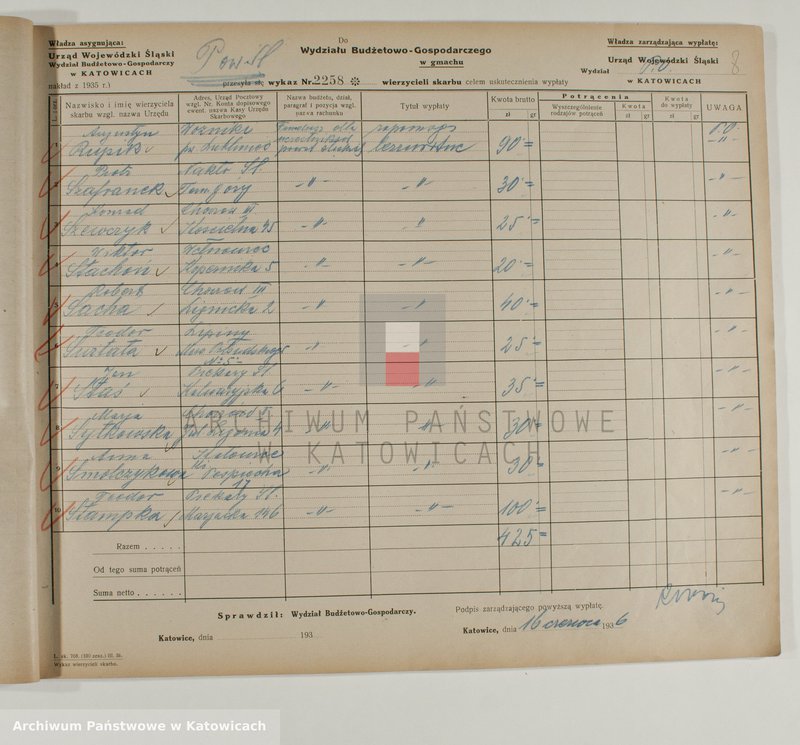 Władza asygnująca:
Urząd Wojewódzki Śląski
Wydział Budżetowo-Gospodarczy
w KATOWICACH
nakład z 1935 r.)
Pow. Śl.
Do
Wydziału Budżetowo-Gospodarczego
w gmachu
przesyła się wykaz Nr. 2258 wierzycieli skarbu celem uskutecznienia wypłaty
Władza zarządzająca wypłatę:
Urząd Wojewódzki Śląski
Wydział
w KATOWICACH
8
Nazwisko i imię wierzyciela skarbu wzgl. nazwa Urzędu
Adres, Urząd Pocztowy wzgl. Nr. Konta dopisowego ewent. nazwa Kasy Urzędu Skarbowego
Nazwa budżetu, dział, paragraf i pozycja wzgl. nazwa rachunku
Tytuł wypłaty
Kwota brutto
zł gr
Potrącenia
Wyszczególnienie rodzajów potrąceń
Kwota
zł gr
Kwota do wypłaty
zł gr
UWAGA
Augustyn Woźniki
Rupik pow. Lubliniec 90 =
Piotr Nakło Śl.
Szafranek Tarn. Góry -"- -"- 30 = -"-
Konrad Chorzów III
Szewczyk Kościelna 45 -"- " 25 = -"-
Wiktor
Stachoń Kopernika 5 -"- -"- 20 = -"-
Robert Chorzów III
Sacha Lignicka 2 -"- -"- 40 = -"-
Teodor Lipiny
25 = -"-
Jan Piekary Śl.
Staś Kalwaryjska 6 -"- -"- 35 = -"-
Marja Chorzów
Sytkowska 30 = -"-
Anna
Smolczykowa 30 = -"-
Teodor Piekary Śl.
Stampka Marjacka 146 -"- -"- 100 = -"-
Razem 425 =
Od tego suma potrąceń
Suma netto
Sprawdził: Wydział Budżetowo-Gospodarczy.
Katowice, dnia 193
Podpis zarządzającego powyższą wypłatę.
Katowice, dnia 16 czerwca 1936
Wykaz wierzycieli skarbu.
ARCHIWUM PAŃSTWOWE
W KATOWICACH
Archiwum Państwowe w Katowicach